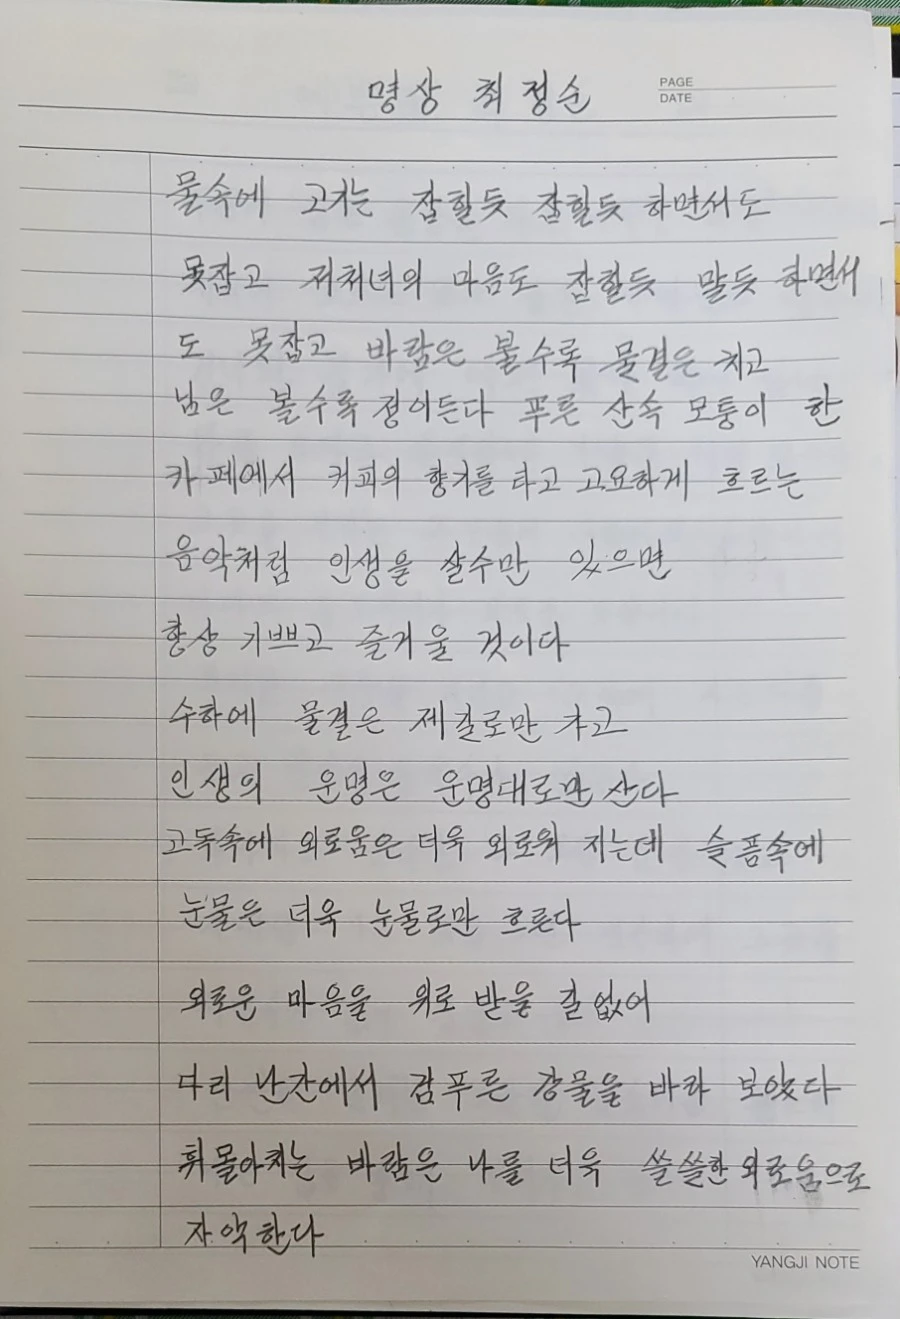 명상 최정순
PAGE
DATE
물속에 고기는 잡힐듯 잡힐듯 하면서도
못잡고 저처녀의 마음도 잡힐듯 말듯 하면서
도 못잡고 바람은 볼수록 물결은 치고
님은 볼수록 정이든다 푸른 산속 모퉁이 한
카페에서 커피의 향기를 타고 고요하게 흐르는
음악처럼 인생을 살수만 있으면
항상 기쁘고 즐거울 것이다
수하에 물결은 제길로만 가고
인생의 운명은 운명대로만 산다
고독속에 외로움은 더욱 외로워 지는데 슬픔속에
눈물은 더욱 눈물로만 흐른다
외로운 마음을 위로 받을 길없어
다리 난간에서 감푸른 강물을 바라 보았다
휘몰아치는 바람은 나를 더욱 쓸쓸한 외로움으로
자악한다
YANGJI NOTE